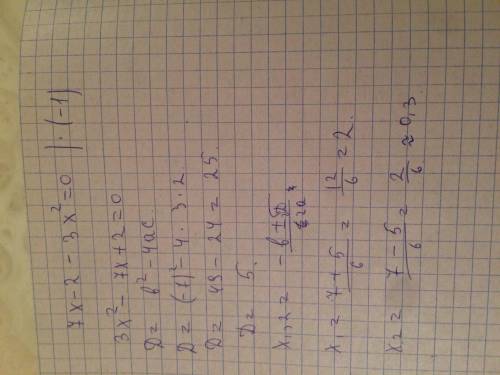 7x-2-3x²=0 | ·(-1)
3x²-7x+2=0
D= b²-4ac
D= (-7)²-4·3·2
D= 49-24= 25.
D= 5.
x₁,₂= -b±√D / 2a
x₁= 7+5/6 = 12/6 = 2.
x₂= 7-5/6 = 2/6 ≈ 0,3